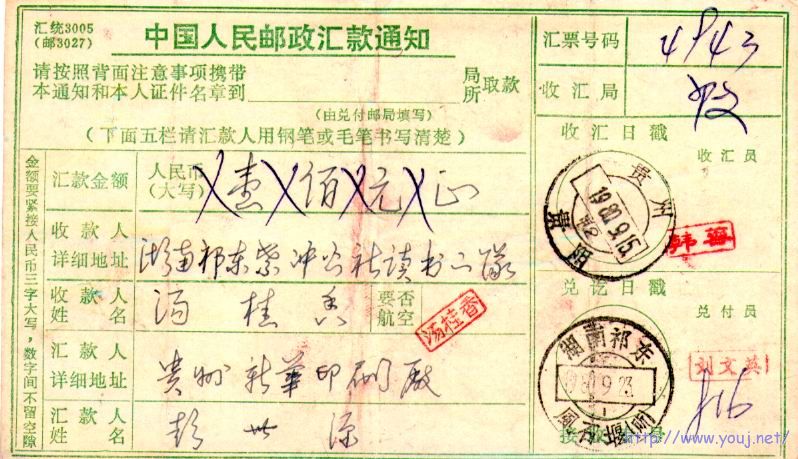 汇统3005
(邮3027)
中国人民邮政汇款通知
请按照背面注意事项携带
本通知和本人证件名章到 局所 取款
(由兑付邮局填写)
(下面五栏请汇款人用钢笔或毛笔书写清楚)
金额要紧接人民币三字大写,数字间不留空隙
汇款金额 人民币(大写) 壹佰元正
收款人详细地址 湖南祁东紫冲公社读书二队
收款人姓名 汤桂香 要否航空 汤桂香
汇款人详细地址 贵州新华印刷厂
汇款人姓名 彭世
汇票号码 4943
收汇局
收汇日戳 收汇员
贵州
1980.9.15
贵阳
兑讫日戳 兑付员
湖南祁东
1980.9.23
刘文英
http://www.youj.net/